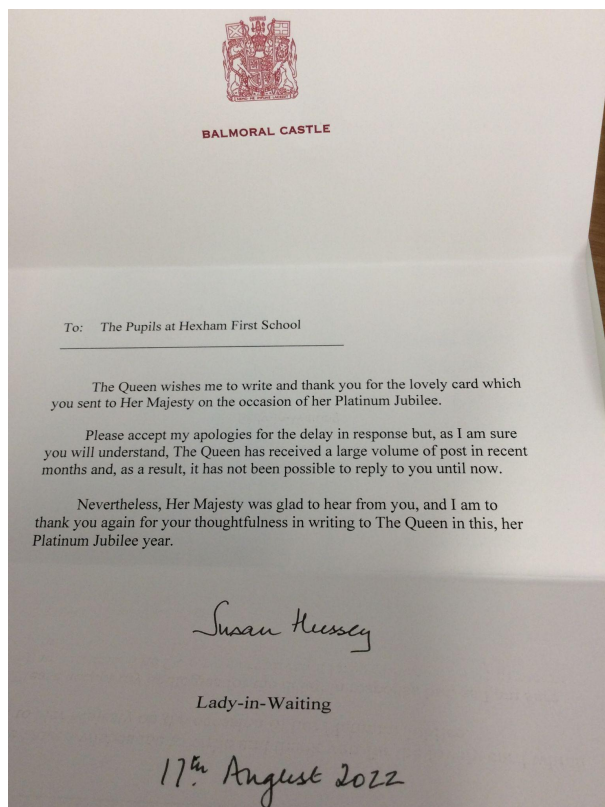 BALMORAL CASTLE
To: The Pupils at Hexham First School
The Queen wishes me to write and thank you for the lovely card which
you sent to Her Majesty on the occasion of her Platinum Jubilee.
Please accept my apologies for the delay in response but, as I am sure
you will understand, The Queen has received a large volume of post in recent
months and, as a result, it has not been possible to reply to you until now.
Nevertheless, Her Majesty was glad to hear from you, and I am to
thank you again for your thoughtfulness in writing to The Queen in this, her
Platinum Jubilee year.
Susan Hussey
Lady-in-Waiting
17th August 2022